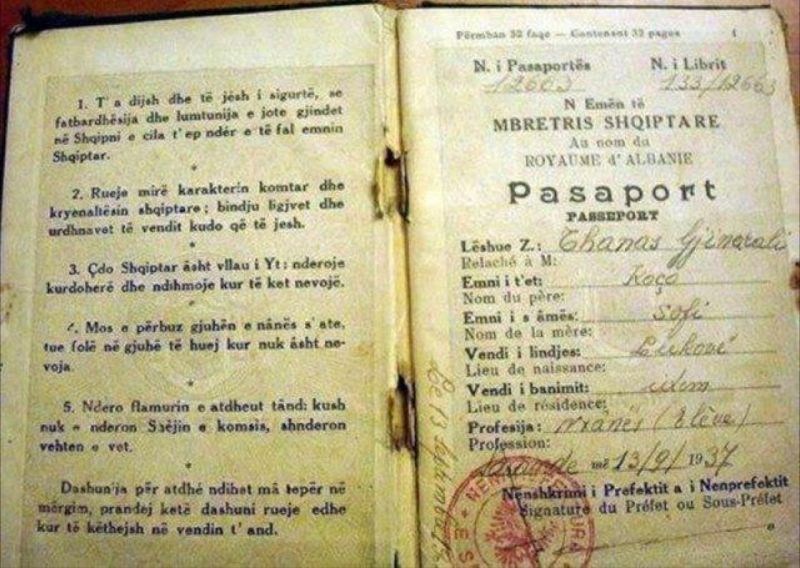 1. T'a dijsh dhe të jesh i sigurtë, se
fatbardhësija dhe lumtunija e jote gjindet
në Shqipni e cila t'ep ndër e të fal emnin
Shqiptar.
2. Rueje mirë karakterin komtar dhe
kryenaltësin shqiptare; bindju ligjvet dhe
urdhnavet të vendit kudo që të jesh.
3. Çdo Shqiptar âsht vllau i Yt: nderoje
kurdoherë dhe ndihmoje kur të ket nevojë.
4. Mos e përbuz gjuhën e nânës s'ate,
tue folë në gjuhë të huej kur nuk âsht ne-
voja.
5. Ndero flamurin e atdheut tând: kush
nuk e nderon Shejin e komsis, shnderon
vehten e vet.
Dashunija për atdhé ndihet mâ tepër në
mërgim, prandej ketë dashuni rueje edhe
kur të këthejsh në vendin t'and.
Përmban 32 faqe — Contenant 32 pages 1
N. i Pasaportës N. i Librit
12663 133/12663
N Emën të
MBRETRIS SHQIPTARE
Au nom du
ROYAUME d'ALBANIE
Pasaport
PASSEPORT
Lëshue Z.: Thanas Gjinarali
Relaché à M:
Emni i t'et: Koço
Nom du père:
Emni i s âmës: Sofi
Nom de la mère:
Vendi i lindjes: Lukovë
Lieu de naissance:
Vendi i banimit: idem
Lieu de résidence:
Profesija: Nxanës (Elève)
Profession:
Sarandë më 13/9/1937
Nënshkrimi i Prefektit a i Nenprefektit
Signature du Préfet ou Sous-Préfet